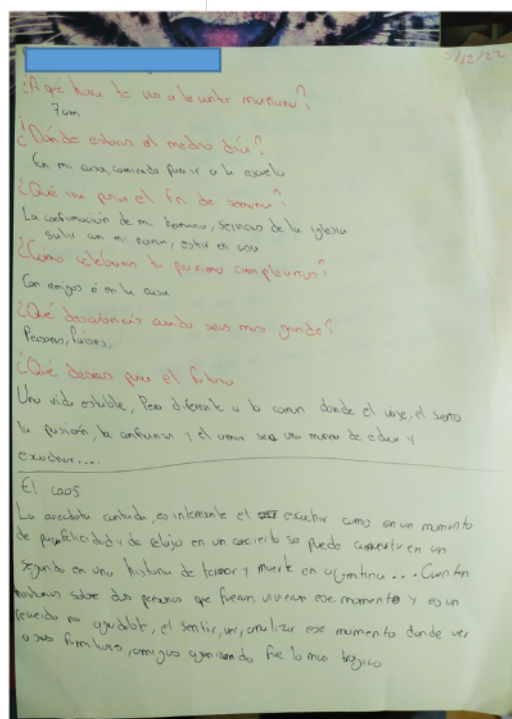 5/12/22
¿A qué hora te vas a levantar mañana?
7am.
¿Dónde estaras al medio día?
En mi casa, comiendo para ir a la escuela
¿Qué para el fin de semana?
La confirmación de mi hermano, servicios de la iglesia
salir con mi novia, estar en casa
¿Cómo celebraras tu proximo cumpleaños?
Con amigos ó en la casa
¿Qué cuando seas mas grande?
Personas, Países,
¿Qué deseas para el futuro
Una vida estable, Pero diferente a lo comun donde el viaje, el sueño
la pasión, la confianza y el amor sea una manera de educar y
escuchar....
El caos
La anecdota contada, es interesante el escuchar como en un momento
de pura felicidad y de relajo en un concierto se puede convertir en un
segundo en una historia de terror y muerte en argentina... Cuentan
historias sobre dos personas que fueron, vivieron ese momento y es un
recuerdo no agradable, el sentir, ver, analizar ese momento donde ver
a sus familiares, amigos agonizando fue lo mas trágico